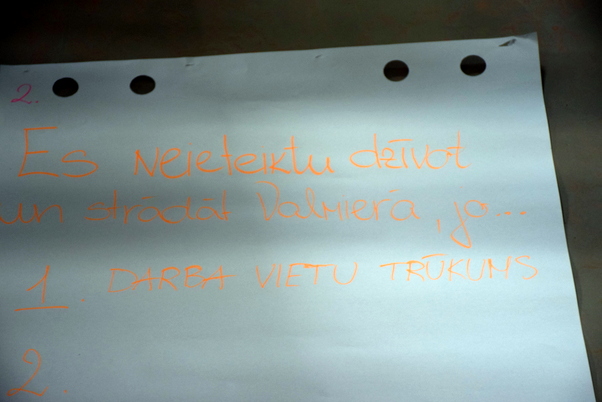 2.
Es neieteiktu dzīvot
un strādāt Valmierā, jo...
1. DARBA VIETU TRŪKUMS
2.